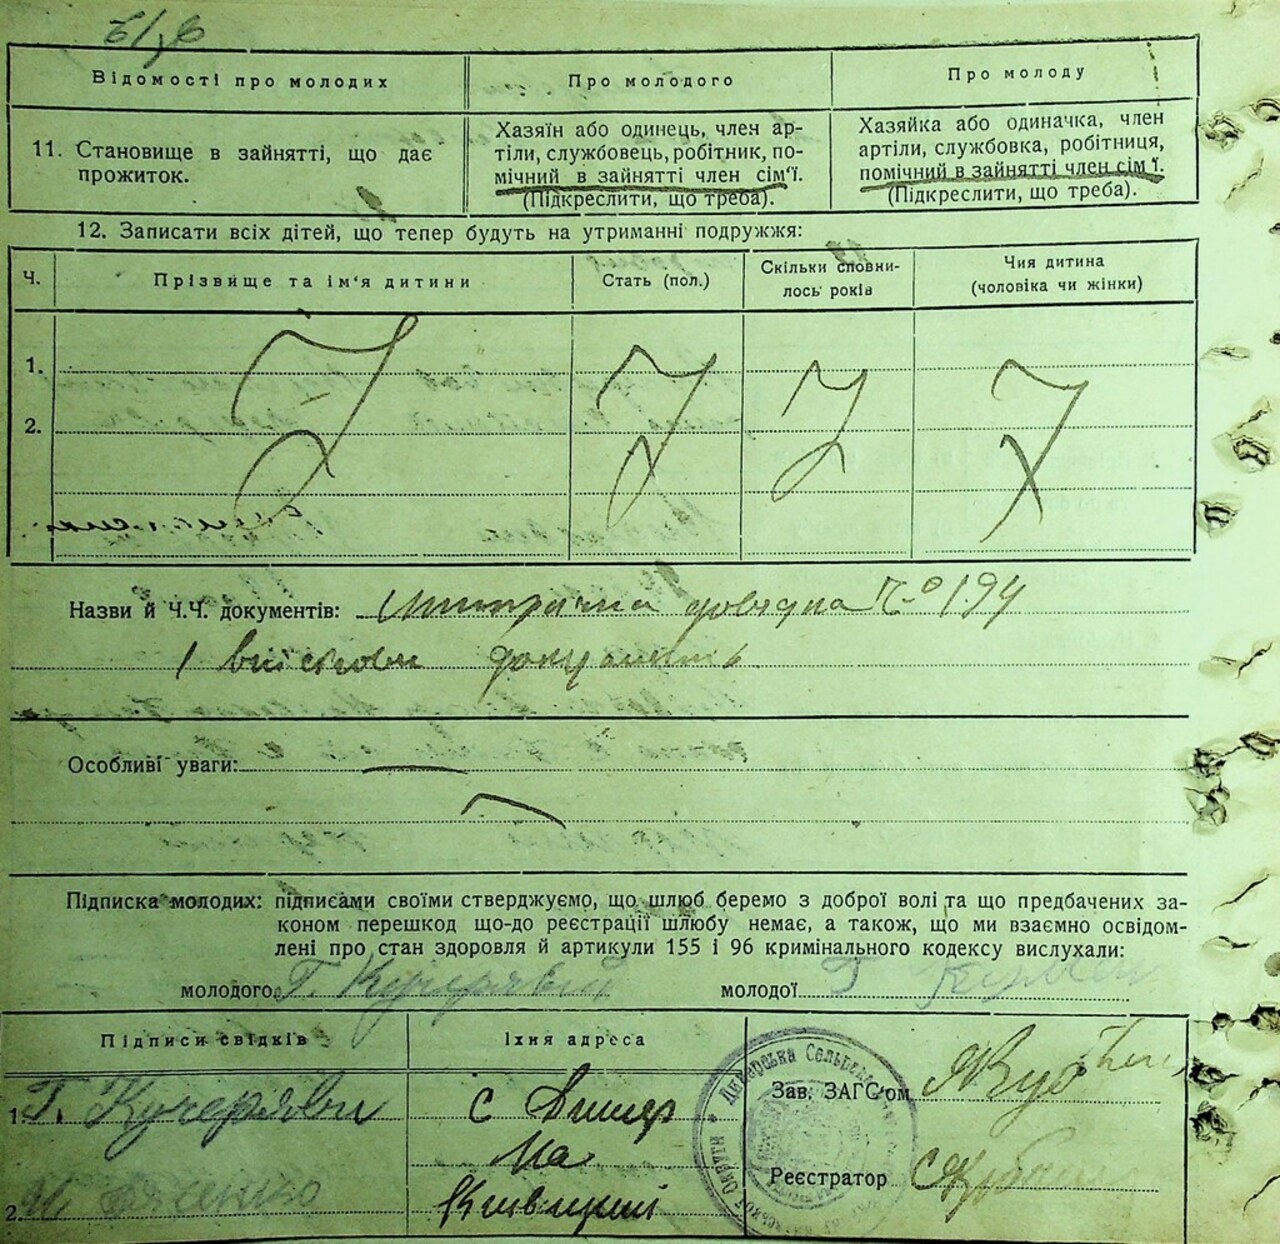 Відомості про молодих
Про молодого
Про молоду
11. Становище в зайнятті, що дає
прожиток.
Хазяїн або одинець, член ар-
тіли, службовець, робітник, по-
мічний в зайнятті член сім'ї.
(Підкреслити, що треба).
Хазяйка або одиначка, член
артіли, службовка, робітниця,
помічний в зайнятті член сім'ї.
(Підкреслити, що треба).
12. Записати всіх дітей, що тепер будуть на утриманні подружжя:
Ч.
Прізвище та ім'я дитини
Стать (пол.)
Скільки сповни-
лось років
Чия дитина
(чоловіка чи жінки)
1.
2.
Назви й Ч.Ч. документів: довідка 194
військови документ
Особливі уваги:
Підписка молодих: підписами своїми стверджуємо, що шлюб беремо з доброї волі та що предбачених за-
коном перешкод що-до реєстрації шлюбу немає, а також, що ми взаємно освідом-
лені про стан здоровля й артикули 155 і 96 кримінального кодексу вислухали:
молодого Г. Кучерявий молодої
Підписи свідків
Їхня адреса
Зав. ЗАГС'ом
1. Г. Кучеряви
с Димер
на
Київщині
Реєстратор
2.